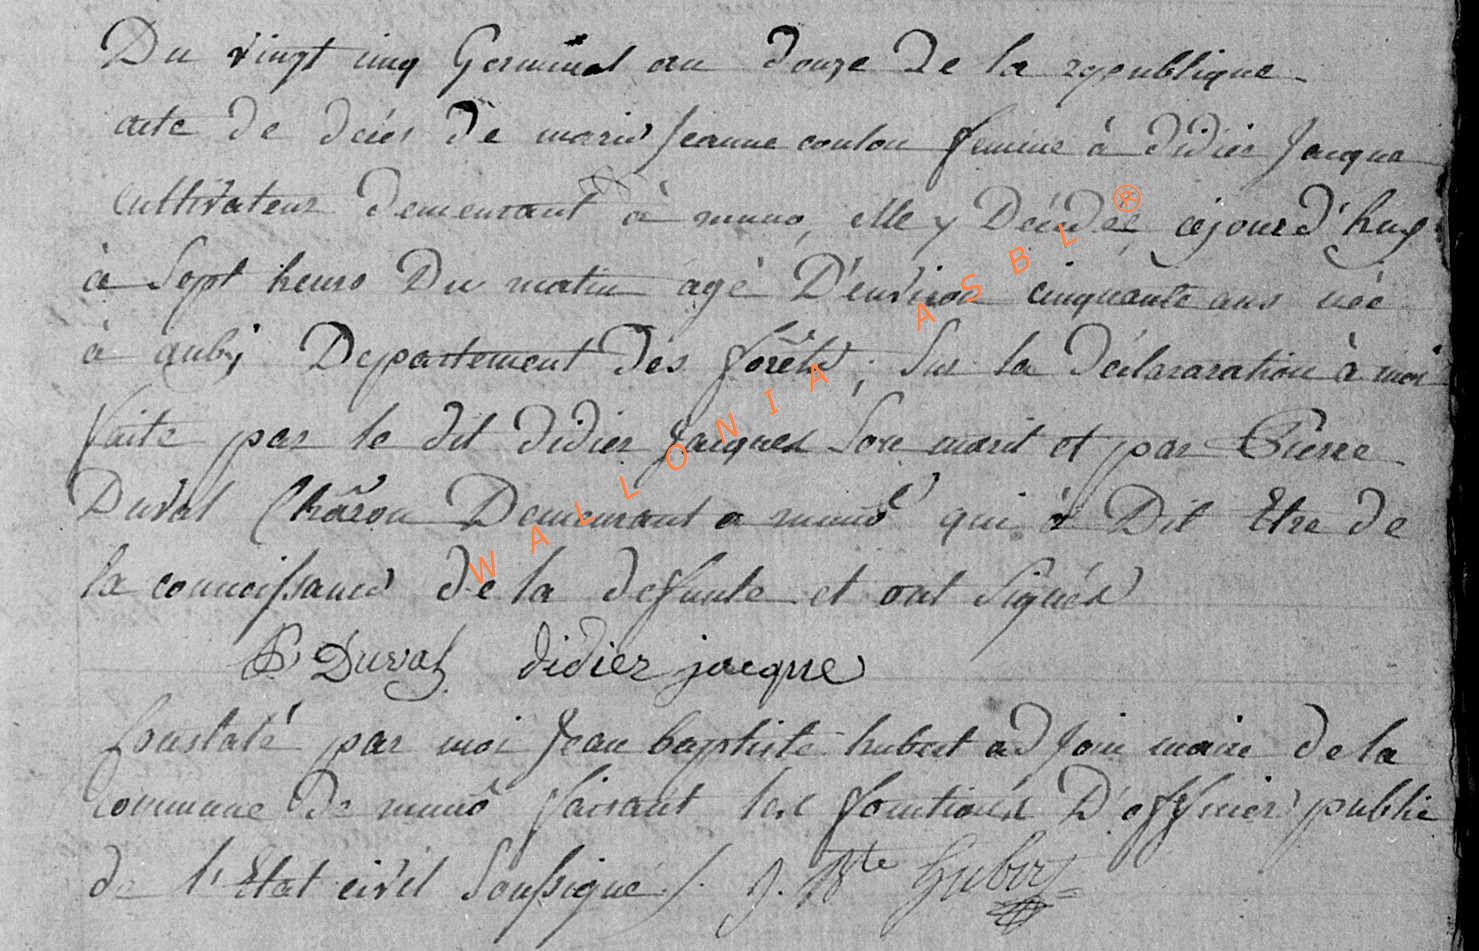 Du vingt cinq Germinal an douze de la republique
acte de décés de marie Jeanne coulon femme à didier Jacque
cultivateur demeurant à muno, elle y Décédée cejourd'huy
à Sept heurs Du matin agé D'environ cinquante ans née
à auby Departement des forêts, Sur la déclararation à moi
faite par le dit didier Jacques Son marit et par Pierre
Duval Charon Demeurant a muno qui à Dit Etre de
la connoissance de la defunte et ont Signés
P Duval didier jacque
Constaté par moi Jean baptiste hubert adjoin maire de la
commune de muno faisant les fonctions D'officier public
de l'Etat civil Soussigné J. Bte Hubert
WALLONIA ASBL ®